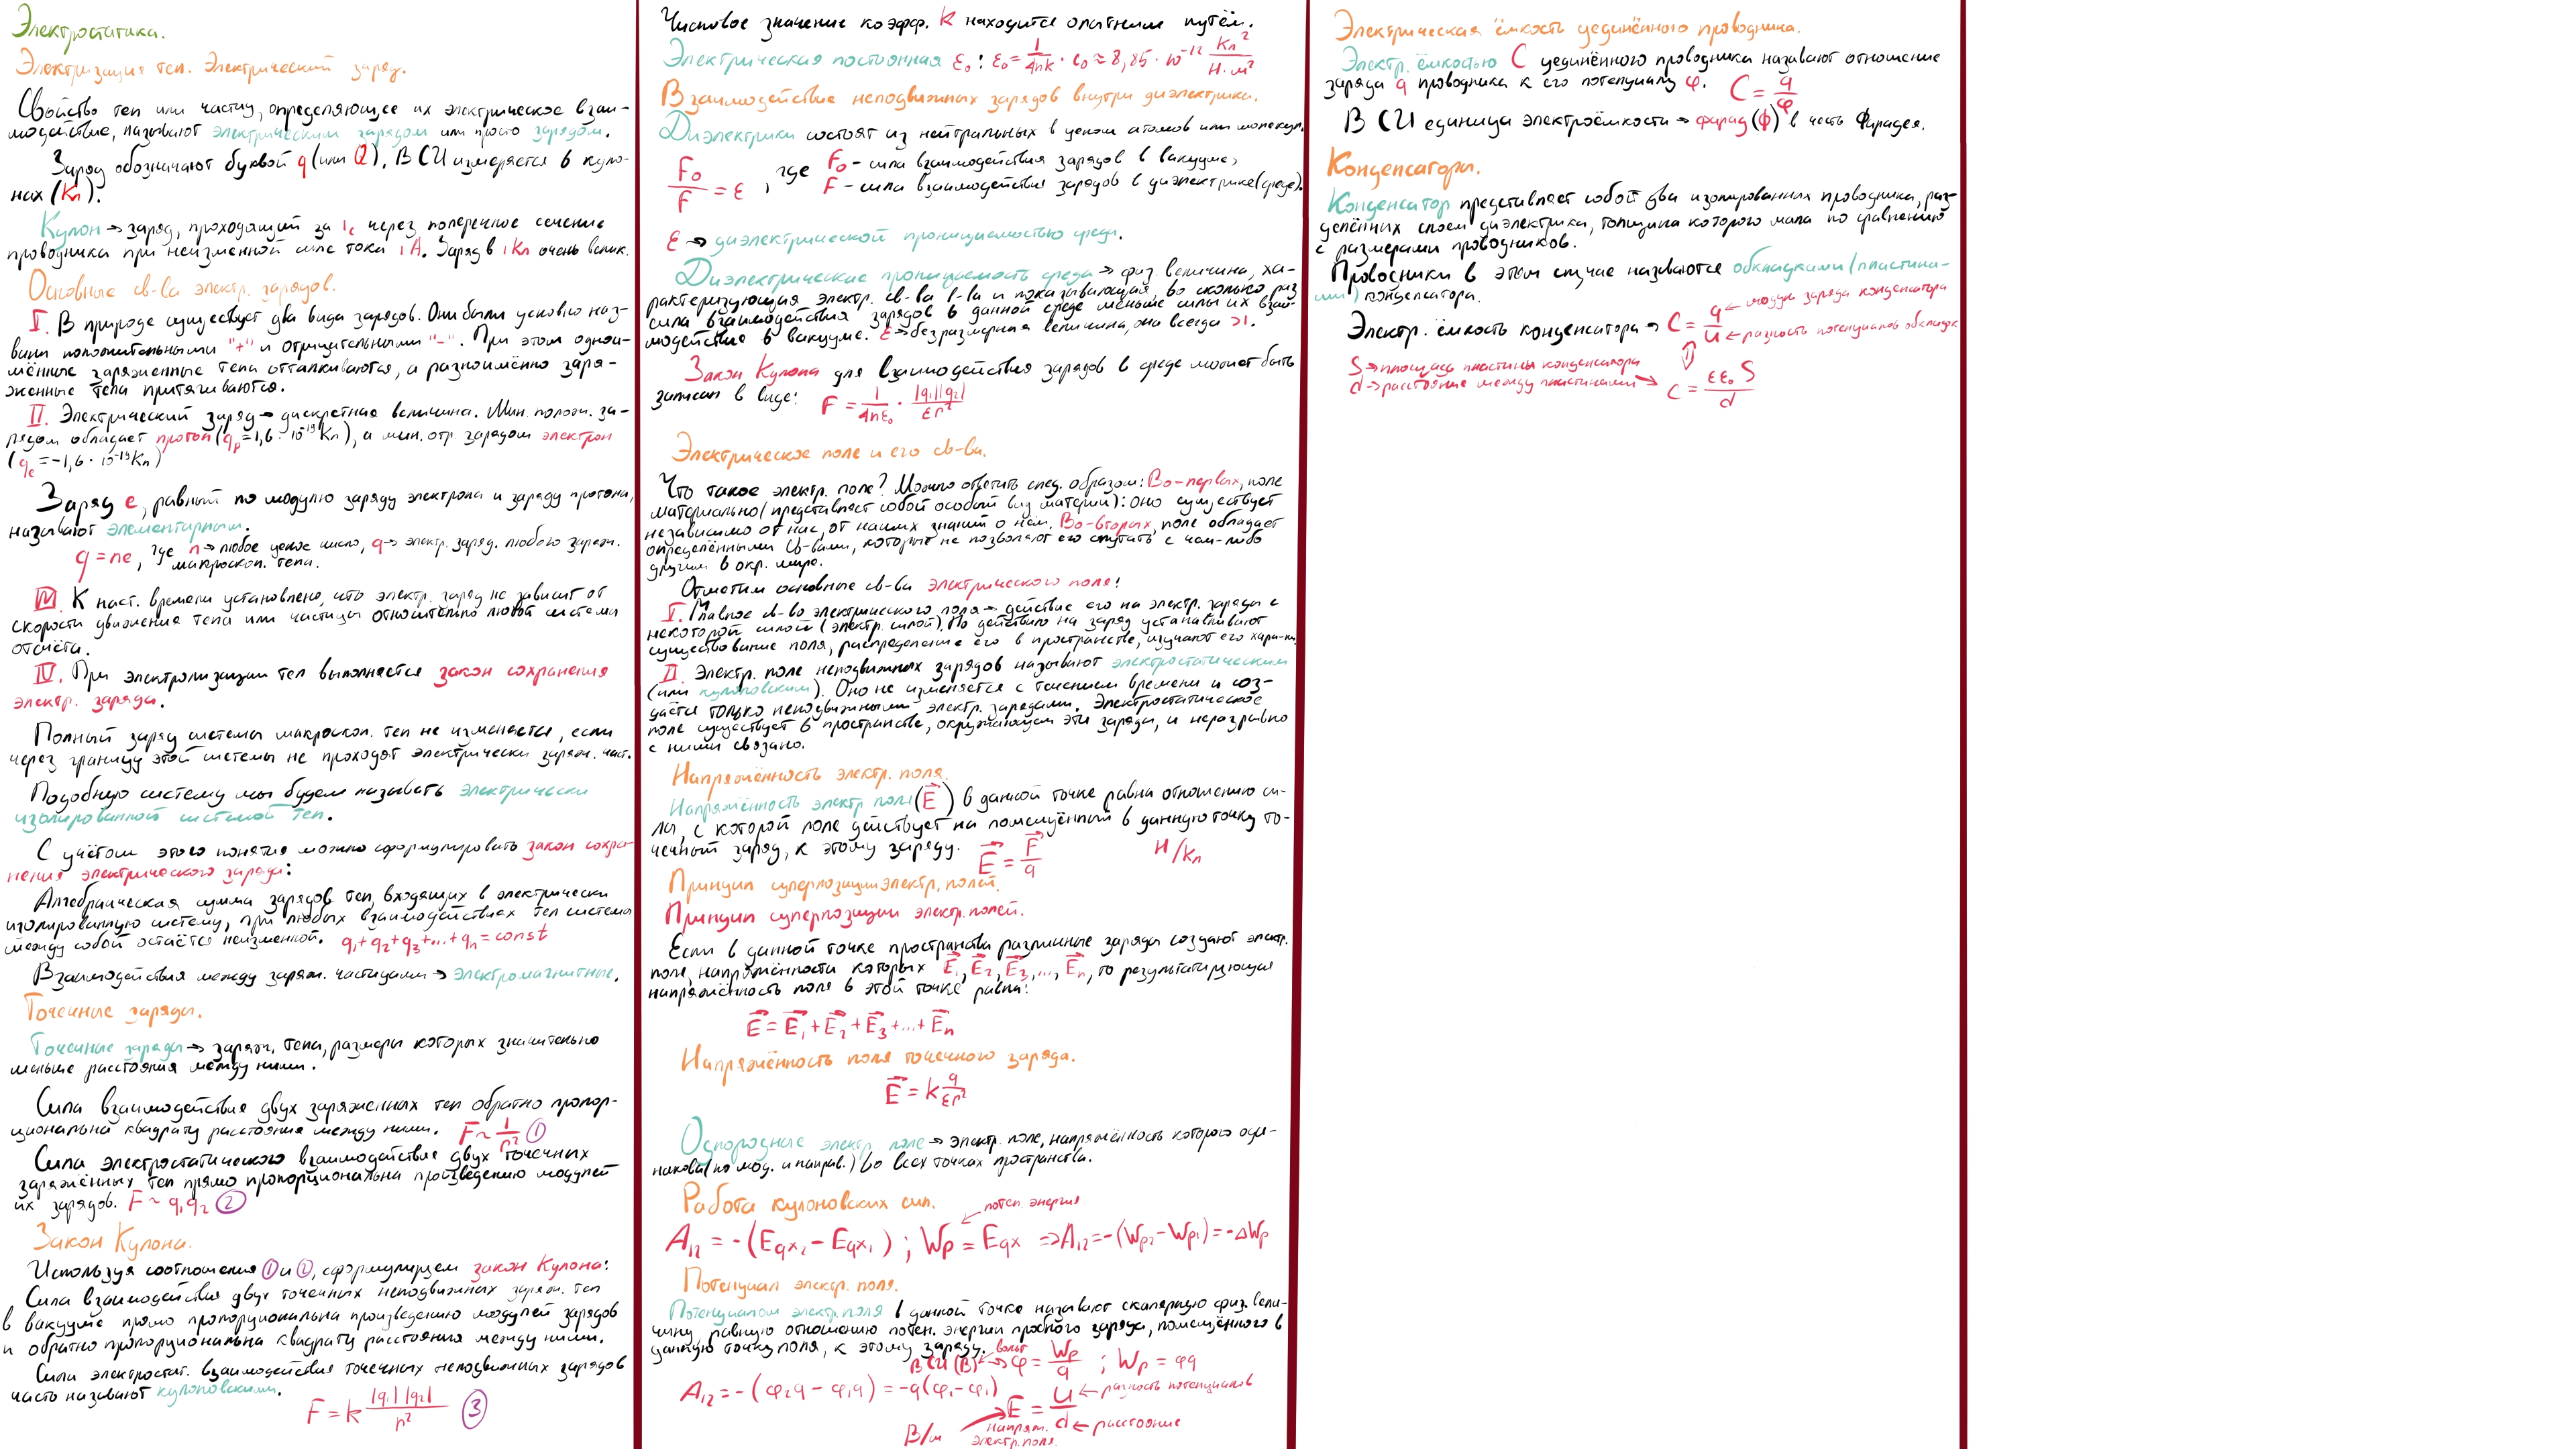 Электростатика.
Электризация тел. Электрический заряд.
Свойство тел или частиц, определяющее их электрическое взаи-
модействие, называют электрическим зарядом или просто зарядом.
Заряд обозначают буквой q (или Q). В СИ измеряется в куло-
нах (Кл).
Кулон → заряд, проходящий за 1с через поперечное сечение
проводника при неизменной силе тока 1А. Заряд в 1Кл очень велик.
Основные св-ва электр. зарядов.
I. В природе существует два вида зарядов. Они были условно наз-
ваны положительными "+" и отрицательными "-". При этом однои-
мённые заряженные тела отталкиваются, а разноимённо заря-
женные тела притягиваются.
II. Электрический заряд → дискретная величина. Мин. полож. за-
рядом обладает протон (qp = 1,6 · 10⁻¹⁹ Кл), а мин. отр зарядом электрон
(qe = -1,6 · 10⁻¹⁹ Кл)
Заряд e, равный по модулю заряду электрона и заряду протона,
называют элементарным.
q = ne, где n → любое целое число, q → электр. заряд. любого заряж.
макроскоп. тела.
III. К наст. времени установлено, что электр. заряд не зависит от
скорости движения тела или частицы относительно любой системы
отсчёта.
IV. При электролизации тел выполняется закон сохранения
электр. заряда.
Полный заряд системы макроскоп. тел не изменяется, если
через границу этой системы не проходят электрически заряж. част.
Подобную систему мы будем называть электрически
изолированной системой тел.
С учётом этого понятия можно сформулировать закон сохра-
нения электрического заряда:
Алгебраическая сумма зарядов тел, входящих в электрически
изолированную систему, при любых взаимодействиях тел системы
между собой остаётся неизменной. q₁+q₂+q₃+...+qₙ = const
Взаимодействия между заряж. частицами → электромагнитные.
Точечные заряды.
Точечные заряды → заряж. тела, размеры которых значительно
меньше расстояния между ними.
Сила взаимодействия двух заряженных тел обратно пропор-
циональна квадрату расстояния между ними. F ~ 1/r² ①
Сила электростатического взаимодействия двух точечных
заряжённых тел прямо пропорциональна произведению модулей
их зарядов. F ~ q₁q₂ ②
Закон Кулона.
Используя соотношения ① и ②, сформулируем закон Кулона:
Сила взаимодействия двух точечных неподвижных заряж. тел
в вакууме прямо пропорциональна произведению модулей зарядов
и обратно пропорциональна квадрату расстояния между ними.
Силы электростат. взаимодействия точечных неподвижных зарядов
часто называют кулоновскими.
F = k |q₁| |q₂| / r² ③
Числовое значение коэфф. k находится опытным путём.
Электрическая постоянная ε₀: ε₀ = 1/4πk · ε₀ ≈ 8,85 · 10⁻¹² Кл²/Н·м²
Взаимодействие неподвижных зарядов внутри диэлектрика.
Диэлектрики состоят из нейтральных в целом атомов или молекул.
F₀/F = ε, где F₀ - сила взаимодействия зарядов в вакууме,
F - сила взаимодействия зарядов в диэлектрике (среде).
ε → диэлектрической проницаемостью среды.
Диэлектрические проницаемость среды → физ. величина, ха-
рактеризующая электр. св-ва в-ва и показывающая, во сколько раз
сила взаимодействия зарядов в данной среде меньше силы их взаи-
модействие в вакууме. ε → безразмерная величина, она всегда >1.
Закон Кулона для взаимодействия зарядов в среде может быть
записан в виде: F = 1/4πε₀ · |q₁||q₂|/εr²
Электрическое поле и его св-ва.
Что такое электр. поле? Можно ответить след. образом: Во-первых, поле
материально (представляет собой особый вид материи): оно существует
независимо от нас, от наших знаний о нём. Во-вторых, поле обладает
определёнными св-вами, которые не позволяют его спутать с чем-либо
другим в окр. мире.
Отметим основные св-ва электрического поля:
I. Главное св-во электрического поля → действие его на электр. заряды с
некоторой силой (электр. силой). По действию на заряд устанавливают
существование поля, распределение его в пространстве, изучают его хара-ки.
II. Электр. поле неподвижных зарядов называют электростатическим
(или кулоновским). Оно не изменяется с течением времени и соз-
даётся только неподвижными электр. зарядами. Электростатическое
поле существует в пространстве, окружающем эти заряды, и неразрывно
с ними связано.
Напряжённость электр. поля.
Напряжённость электр поля (E⃗) в данной точке равна отношению си-
лы, с которой поле действует на помещённый в данную точку то-
чечный заряд, к этому заряду. E⃗ = F⃗/q Н/Кл
Принцип суперпозиции электр. полей.
Принцип суперпозиции электр. полей.
Если в данной точке пространства различные заряды создают электр.
поле, напряжённости которых E⃗₁, E⃗₂, E⃗₃, ..., E⃗ₙ, то результатирующая
напряжённость поля в этой точке равна:
E⃗ = E⃗₁ + E⃗₂ + E⃗₃ + ... + E⃗ₙ
Напряжённость поля точечного заряда.
E⃗ = k q/εr²
Однородные электр. поле → электр. поле, напряжённость которого оди-
накова (по мод. и направ.) во всех точках пространства.
Работа кулоновских сил.
потен. энергия
A₁₂ = -(Eqx₂ - Eqx₁); Wp = Eqx ⇒ A₁₂ = -(Wp₂ - Wp₁) = -ΔWp
Потенциал электр. поля.
Потенциалом электр. поля в данной точке называют скалярную физ. вели-
чину, равную отношению потен. энергии пробного заряда, помещённого в
данную точку поля, к этому заряду. вольт
В СИ (В) → φ = Wp/q ; Wp = φq
A₁₂ = -(φ₂q - φ₁q) = -q(φ₁ - φ₁)
E = U/d ← разность потенциалов
← расстояние
В/м напряж. электр. поля.
Электрическая ёмкость уединённого проводника.
Электр. ёмкостью C уединённого проводника называют отношение
заряда q проводника к его потенциалу φ. C = q/φ
В СИ единица электроёмкости → фарад (Ф) в честь Фарадея.
Конденсаторы.
Конденсатор представляет собой два изолированных проводника, раз-
делённых слоем диэлектрика, толщина которого мала по сравнению
с размерами проводников.
Проводники в этом случае называются обкладками (пластина-
ми) конденсатора.
Электр. ёмкость конденсатора → C = q/U
← модуль заряда конденсатора
← разность потенциалов обкладок
S → площадь пластины конденсатора
d → расстояние между пластинами → C = εε₀S/d